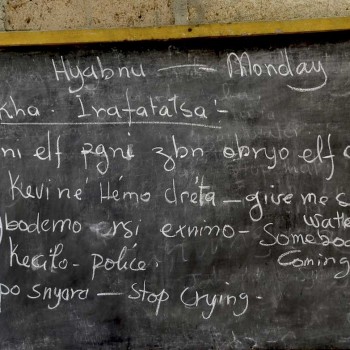 Hyabnu — Monday
kha. Irafatatsa:-
ni elf pgni zbn obryo elf
Keviné Hémo dréta — give me s
wate
bodemo ersi exnimo - Somebod
Coming
Kecito - police.
po snyora — Stop Crying.